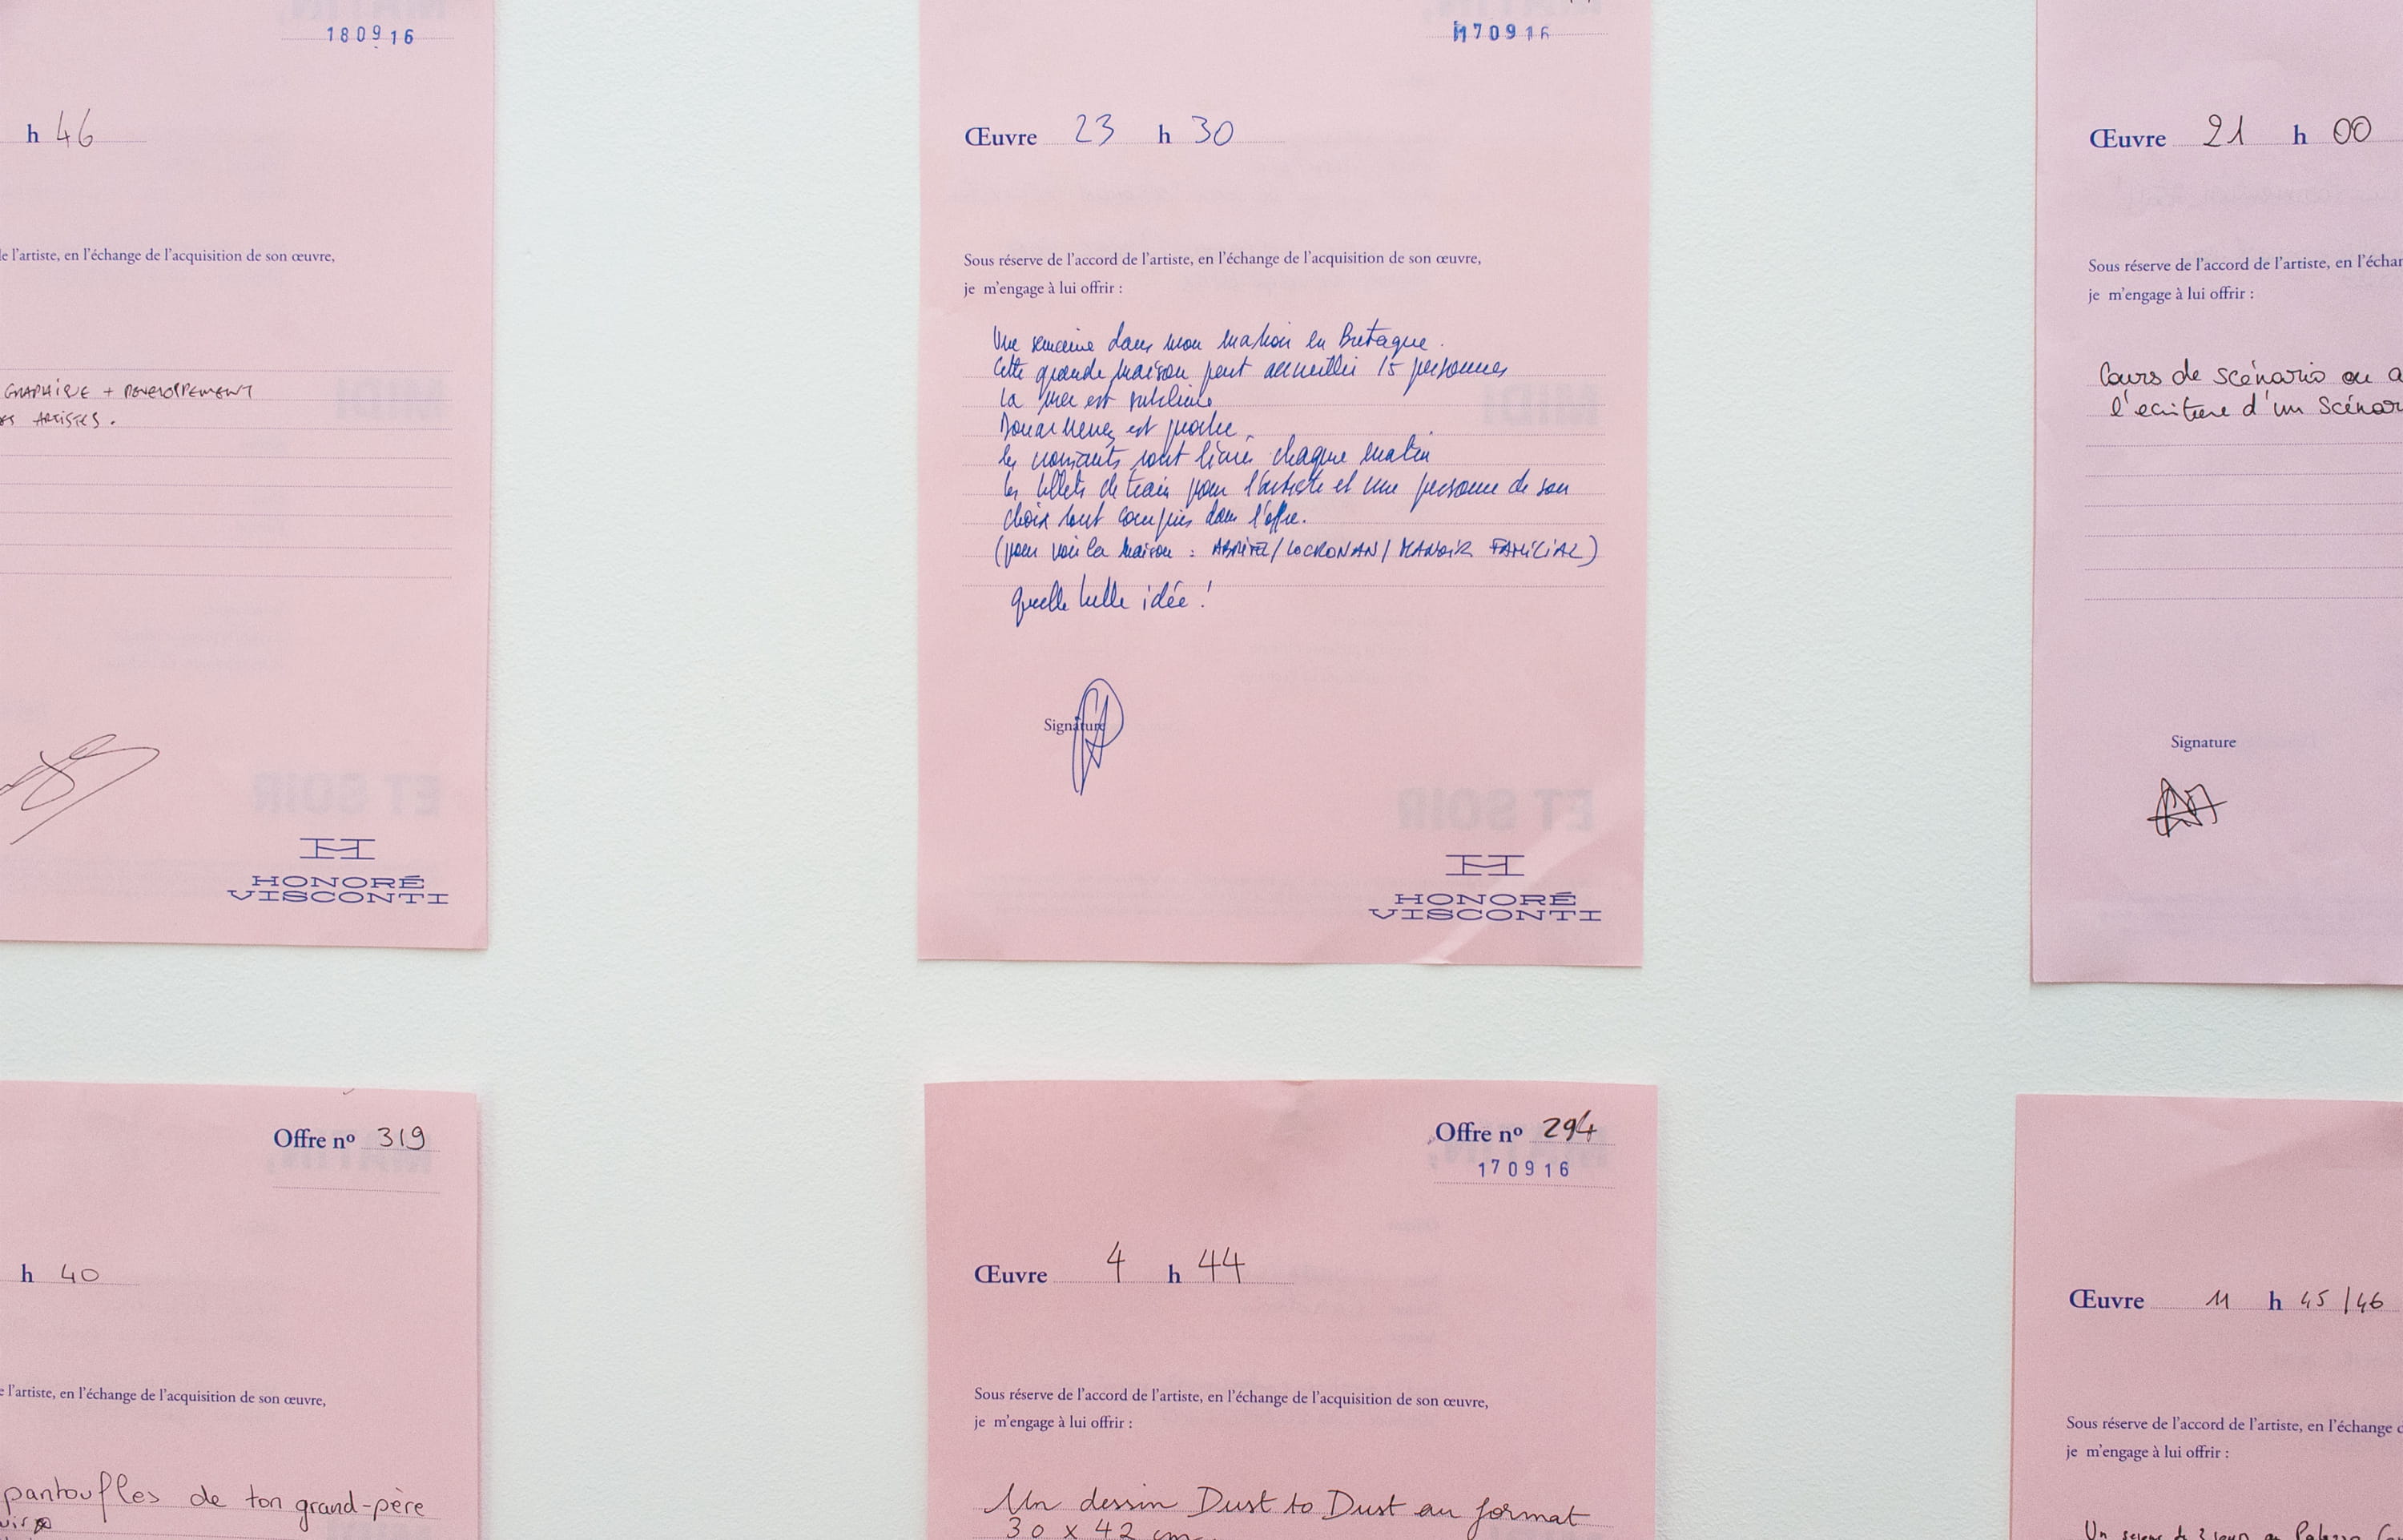 180916
h 46
de l'artiste, en l'échange de l'acquisition de son œuvre,
GRAPHIQUE + DEVELOPPEMENT
ARTISTES.
HONORÉ
VISCONTI
170916
Œuvre 23 h 30
Sous réserve de l'accord de l'artiste, en l'échange de l'acquisition de son œuvre,
je m'engage à lui offrir :
Une semaine dans mon maison en Bretagne.
Cette grande maison peut accueillir 15 personnes
La mer est sublime
Douarnenez est proche.
les croissants sont livrés chaque matin
les billets de train pour l'artiste et une personne de son
choix sont compris dans l'offre.
(pour voir la maison : ABRITEL/LOCRONAN/MANOIR FAMILIAL)
quelle belle idée !
Signature
ET SOIR
HONORÉ
VISCONTI
Œuvre 21 h 00
Sous réserve de l'accord de l'artiste, en l'échan
je m'engage à lui offrir :
Cours de scénario ou a
l'écriture d'un Scénar
Signature
Offre nº 319
h 40
e l'artiste, en l'échange de l'acquisition de son œuvre,
pantoufles de ton grand-père
Offre nº 294
170916
Œuvre 4 h 44
Sous réserve de l'accord de l'artiste, en l'échange de l'acquisition de son œuvre,
je m'engage à lui offrir :
Un dessin Dust to Dust au format
30 x 42 cm
Œuvre 11 h 45/46
Sous réserve de l'accord de l'artiste, en l'échange d
je m'engage à lui offrir :